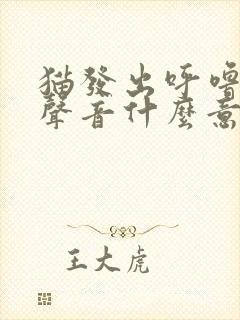 猫發出呼嚕
聲音什麼意
王大虎